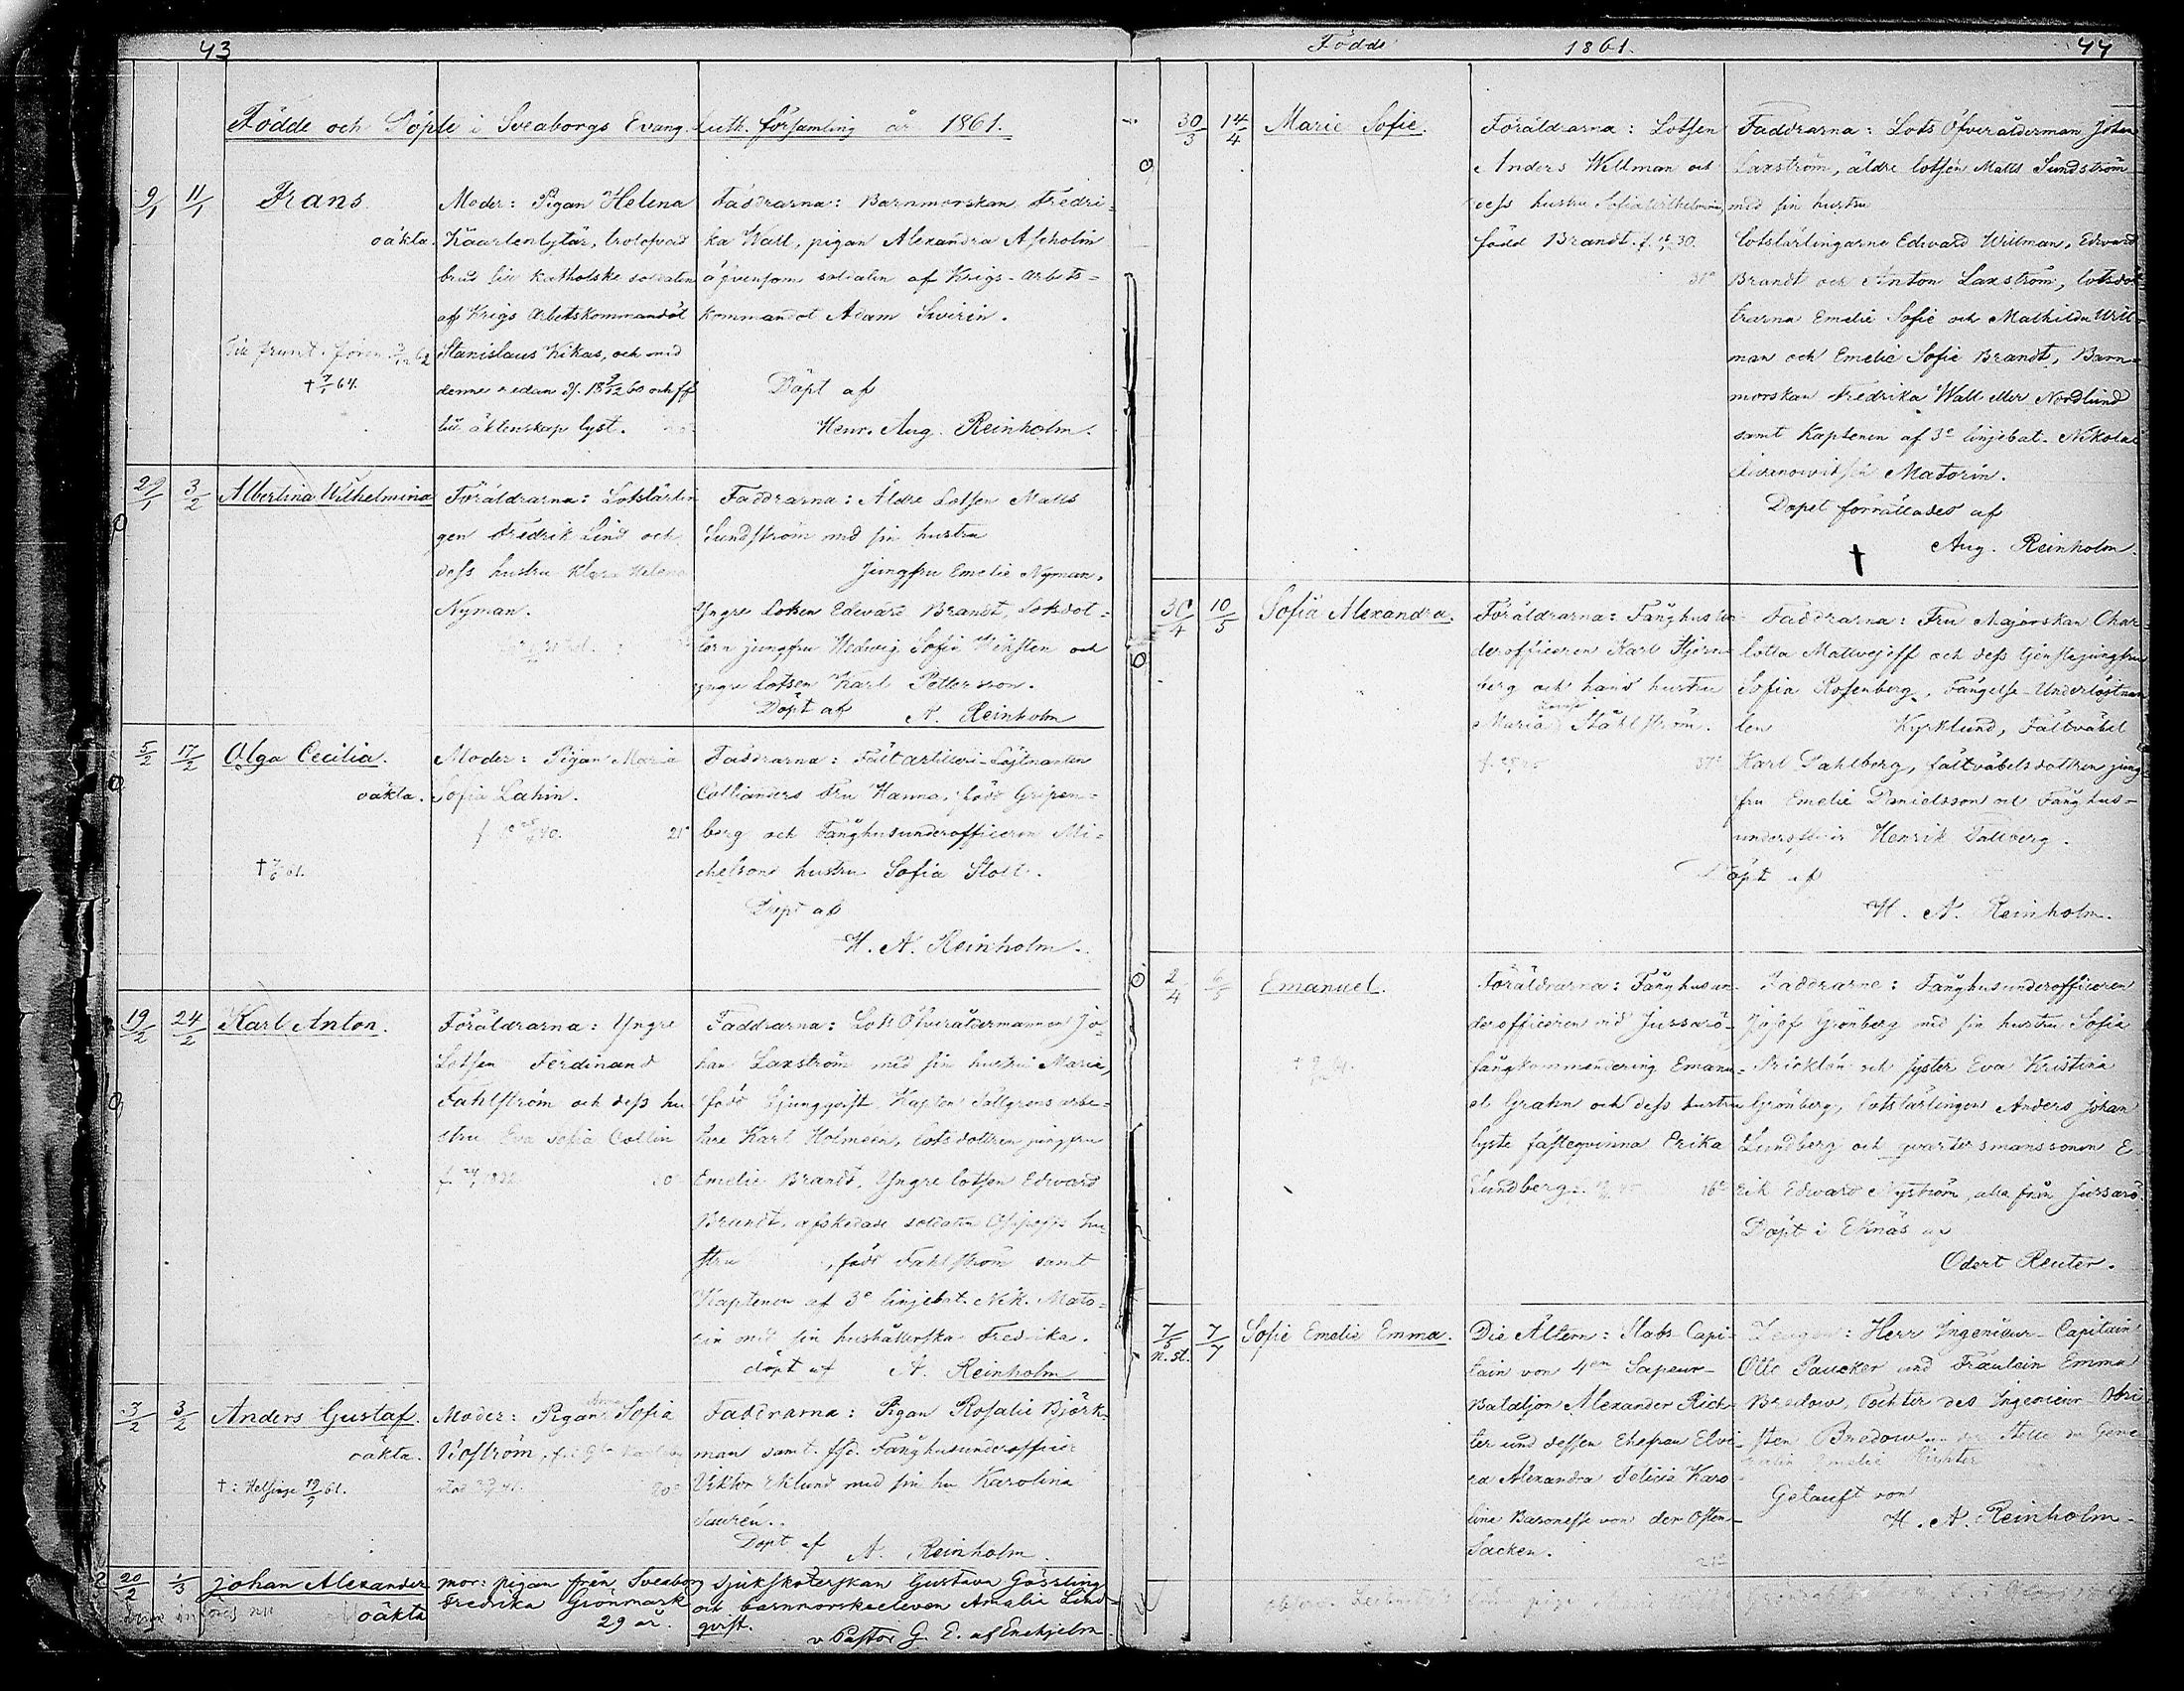 43
Födde och Döpte i Sveaborgs Evang. Luth. församling år 1861.
9/1 11/1 Frans
oäkta.
† 7/1 64.
Moder: Pigan Helena
Kaarlentytär, trolofvad
brud till katholske soldaten
af Krigs Arbetskommandot
Stanislaus Kikas, och med
denne redan d. 18 9/12 60 och ff
till äktenskap lyst.
Faddrarna: Barnmorskan Fredri-
ka Wall, pigan Alexandra Ascholin
äfvensom soldaten af Krigs-Arbets-
kommandot Adam Swirin.
Döpt af
Henr. Aug. Reinholm.
29/1 3/2 Albertina Wilhelmina
Föräldrarna: Lotslärlin
gen Fredrik Lind och
dess hustru Klara Helena
Nyman.
Faddrarna: Äldre Lotsen Matts
Sundström med sin hustru
Jungfru Emelie Nyman,
Yngre Lotsen Edvard Brandt, Lotsdot-
tern jungfru Hedwig Sofia Wiksten och
yngre Lotsen Karl Pettersson.
Döpt af A. Reinholm
5/2 17/2 Olga Cecilia.
oäkta.
† 7/6 61.
Moder: Pigan Maria
Sofia Lahin.
21°
Faddrarna: Fältartilleri-Löjtnanten
Collianders Fru Hanna, född Gripen-
berg och Fånghusunderofficeren Mi-
chelsons hustru Sofia Stolt.
Döpt af
H. A. Reinholm.
19/2 24/2 Karl Anton.
Föräldrarna: Yngre
Lotsen Ferdinand
Fahlström och dess hu
stru Eva Sofia Collin
Faddrarna: Lots Öfveråldermannen Jo-
han Laxström med sin hustru Maria,
född Ljungqvist, Kapten Tallgrens arbe-
tare Karl Holmeén, lotsdottren jungfru
Emelie Brandt, Yngre lotsen Edward
Brandt, afskedade soldaten Osipoffs hu-
stru , född Fahlström samt
Kaptenen af 3e linjebat. Nik. Mato-
rin med sin hushållerska Fredrika.
döpt af A. Reinholm
3/2 3/2 Anders Gustaf.
oäkta.
† i Helsinge 19/7 61.
Moder: Pigan Anna Sofia
Roström,
20°
Faddrarna: Pigan Rosalie Björk-
man samt ffd. Fånghusunderofficer
Viktor Eklund med sin hu Karolina
Saurén.
Döpt af A. Reinholm.
20/2 1/3 Johan Alexander
oäkta
mor: pigan från Sveaborg
Fredrika Grönmark
29 år.
Sjuksköterskan Gustava Gössling
och barnmorskeeleven Amalia Lind-
qvist.
v Pastor G. E. af Enehjelm
Födde 1861. 44
30/3 14/4 Marie Sofie.
Föräldrarna: Lotsen
Anders Willman och
dess hustru Sofia Wilhelmina,
född Brandt.
31°
Faddrarna: Lots Öfverålderman Johan
Laxström, äldre lotsen Matts Sundström
med sin hustru
lotslärlingarne Edward Willman, Edvard
Brandt och Anton Laxström, lotsdot-
trarna Emelie Sofie och Mathilda Will-
man och Emelie Sofie Brandt, Barn-
morskan Fredrika Wall eller Nordlund
samt Kaptenen af 3e linjebat. Nikolai
Matorin.
Dopet förrättades af
Aug. Reinholm.
†
30/4 10/5 Sofia Alexandra.
Föräldrarna: Fånghusun-
derofficeren Karl Hjern-
berg och hans hustru
Maria Ståhlström.
37°
Faddrarna: Fru Majorskan Char-
lotta Mattvejeff och dess tjenstejungfru
Sofia Rosenberg, Fängelse-Underlöjtnan
ten Kyrklund, Fältväbel
Karl Dahlberg, fältväbelsdottren jung-
fru Emelie Danielsson och Fånghus-
underofficer Henrik Tallberg.
Döpt af
H. A. Reinholm.
2/4 6/5 Emanuel.
Föräldrarna: Fånghusun-
derofficeren vid Jussarö-
fångkommendering Emanu-
el Grahn och dess hustru
lyste fästeqvinna Erika
Lundberg.
16°
Faddrarne: Fånghusunderofficeren
Josef Grönberg med sin hustru Sofia
Pricklén och syster Eva Kristina
Grönberg, lotslärlingen Anders Johan
Lundberg och qvartersmanssonen E-
rik Edward Nyström, alla från Jussarö.
Döpt i Ekenäs af
Odert Reuter.
7/5 n. st. 7/7 Sofie Emelie Emma.
Die Ältern: Stabs-Capi-
tain von 4en Sapeur-
Bataljon Alexander Rich-
ter und dessen Ehefrau Elvi-
ra Alexandra Felicia Karo-
line Baronesse von der Osten-
Sacken.
Zeugen: Herr Ingenieur-Capitain
Otto Paucker und Fräulein Emma
Bredow, Tochter des Ingenieur-Obri
sten Bredow in der Stelle der Gene
ralin Emelie Richter
Getauft von
H. A. Reinholm.